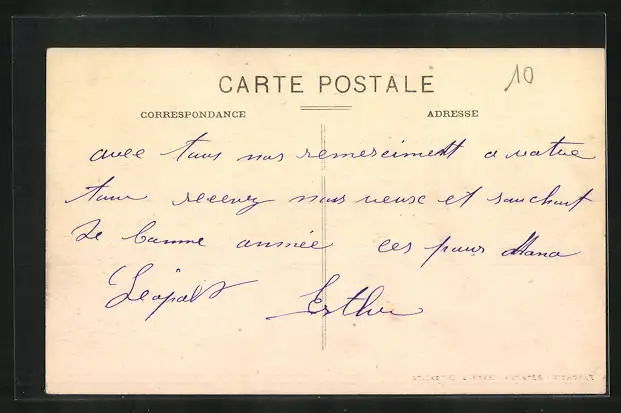 10
CARTE POSTALE
CORRESPONDANCE
ADRESSE
avec tous nos remerciment a votre
tour recevez nous veux et souchart
de bonne année ces pour Mana
Léopold Esther